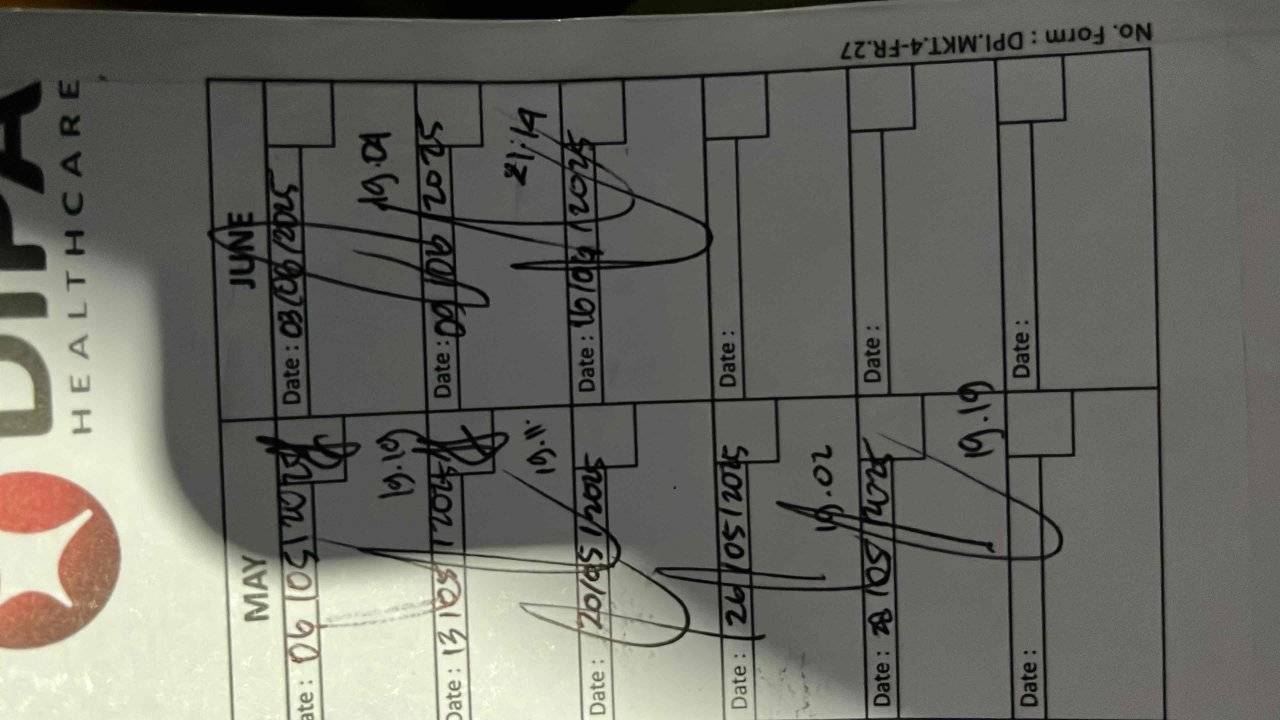 DIPA
HEALTHCARE
No. Form : DPI.MKT.4-FR.27
MAY
Date : 06/05/2025
19.19
Date : 13/05/2025
19.11
Date : 20/05/2025
Date : 26/05/2025
19.02
Date : 28/05/2025
19.19
Date :
JUNE
Date : 03/06/2025
19.09
Date : 09/06/2025
21:14
Date : 16/06/2025
Date :
Date :
Date :